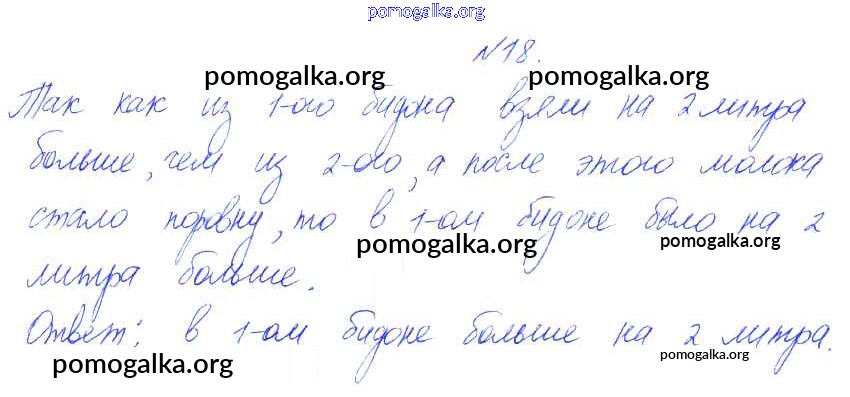 pomogalka.org
N18.
pomogalka.org
Так как из 1-ого бидона взяли на 2 литра
больше, чем из 2-ого, а после этого молока
стало поровну, то в 1-ом бидоне было на 2
pomogalka.org pomogalka.org
литра больше.
Ответ: в 1-ом бидоне больше на 2 литра.
pomogalka.org pomogalka.org